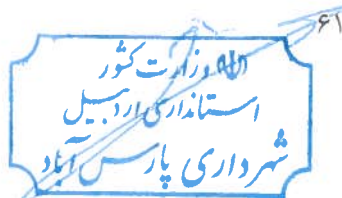 ۶۱
وزارت کشور
استانداری اردبیل
شهرداری پارس آباد